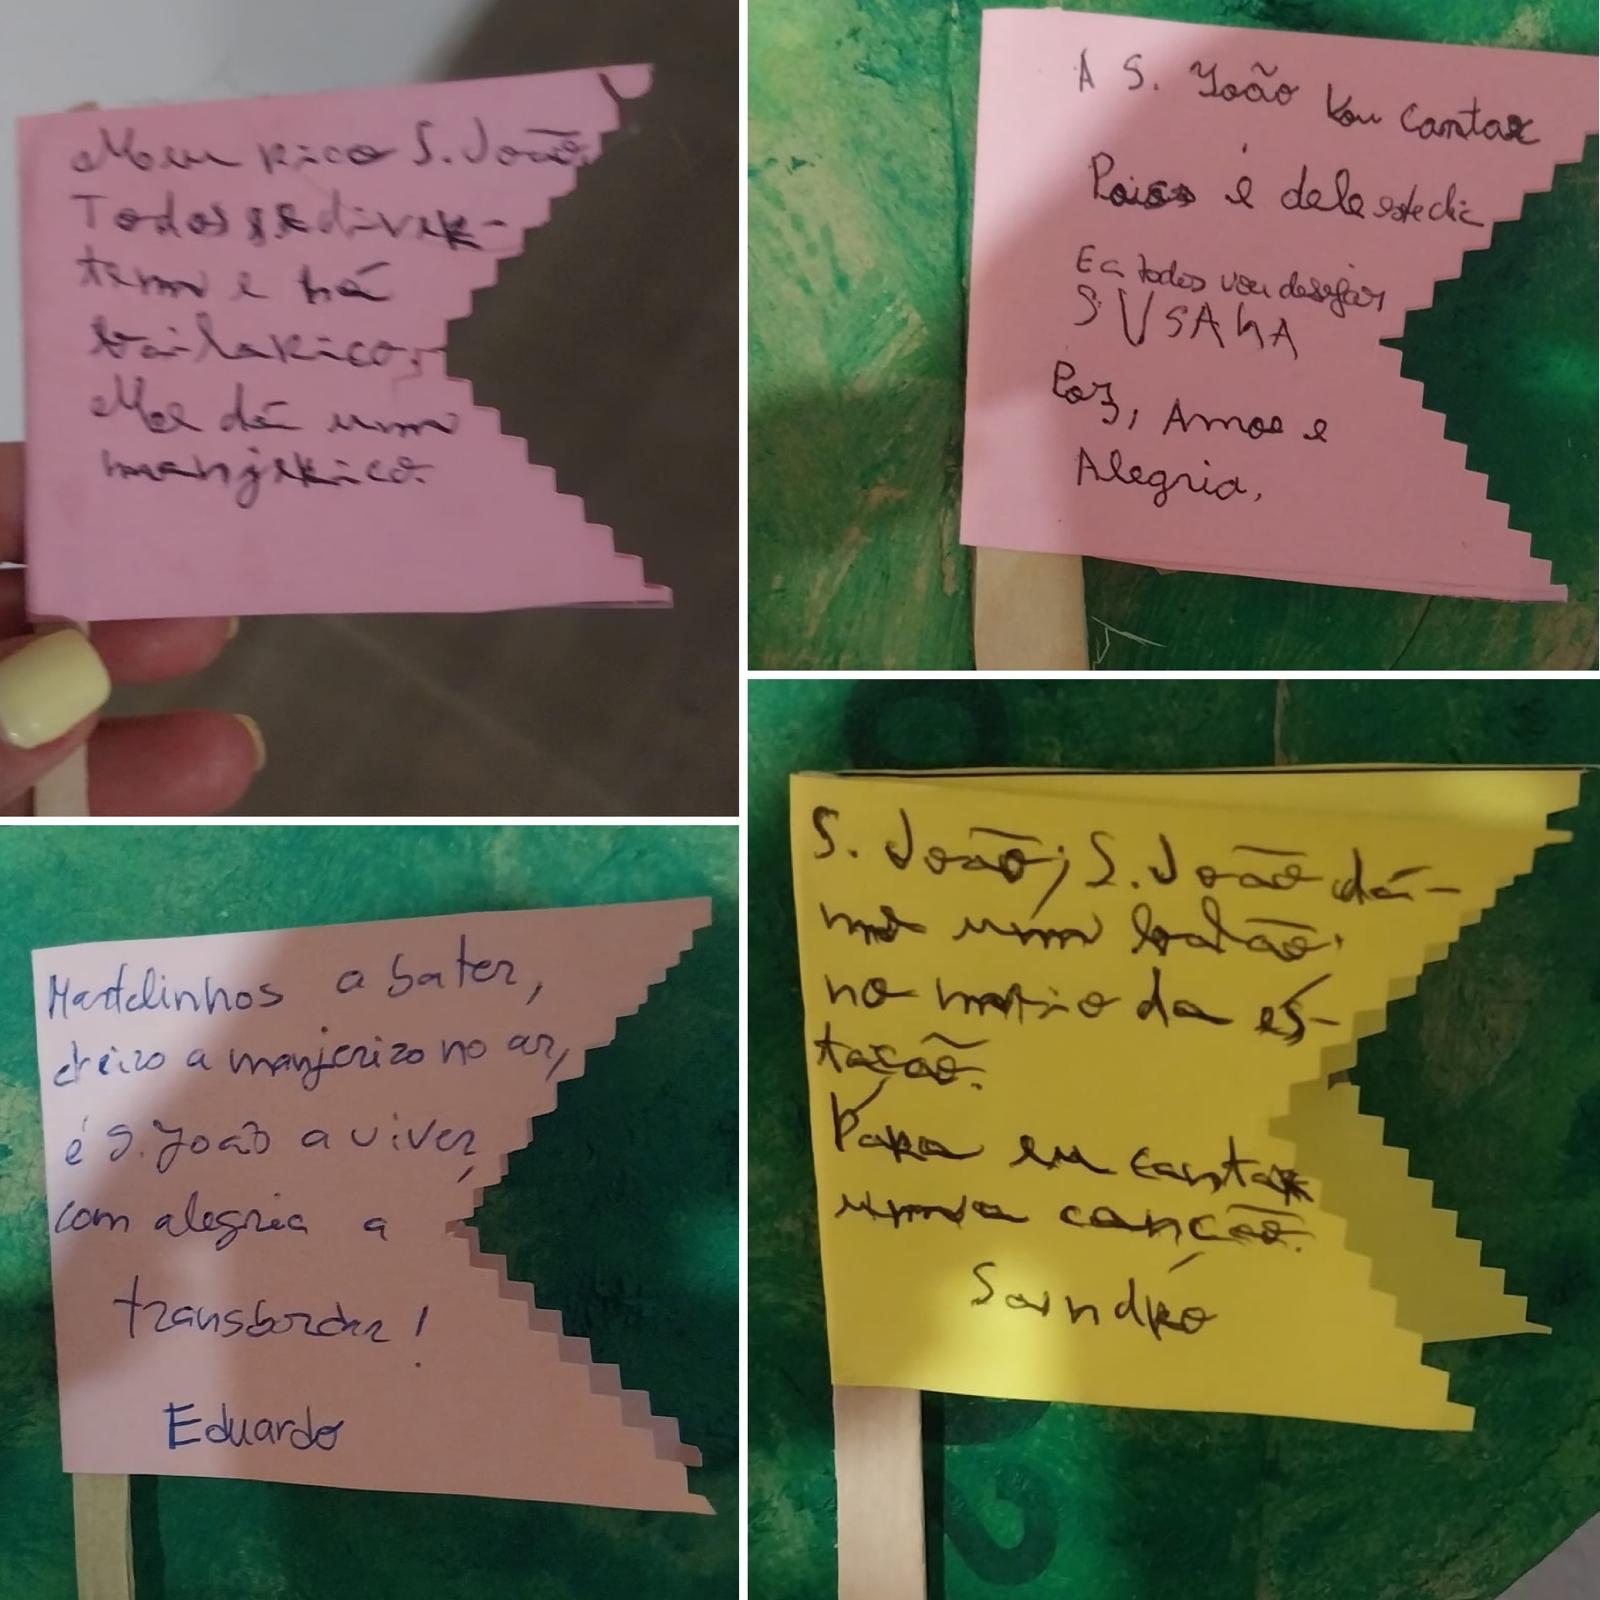 Meu rico S. João,
Todos se diver-
tem e há
bailarico,
Me dá um
manjerico.
A S. João vou cantar
Pois é dele este dia
E a todos vou desejar
SUSANA
Paz, Amor e
Alegria,
Martelinhos a bater,
cheiro a manjerico no ar,
é S. João a viver,
com alegria a
transbordar!
Eduardo
S. João, S. João dá-
me um balão,
no meio da es-
tação.
Para eu cantar
uma canção.
Sandro